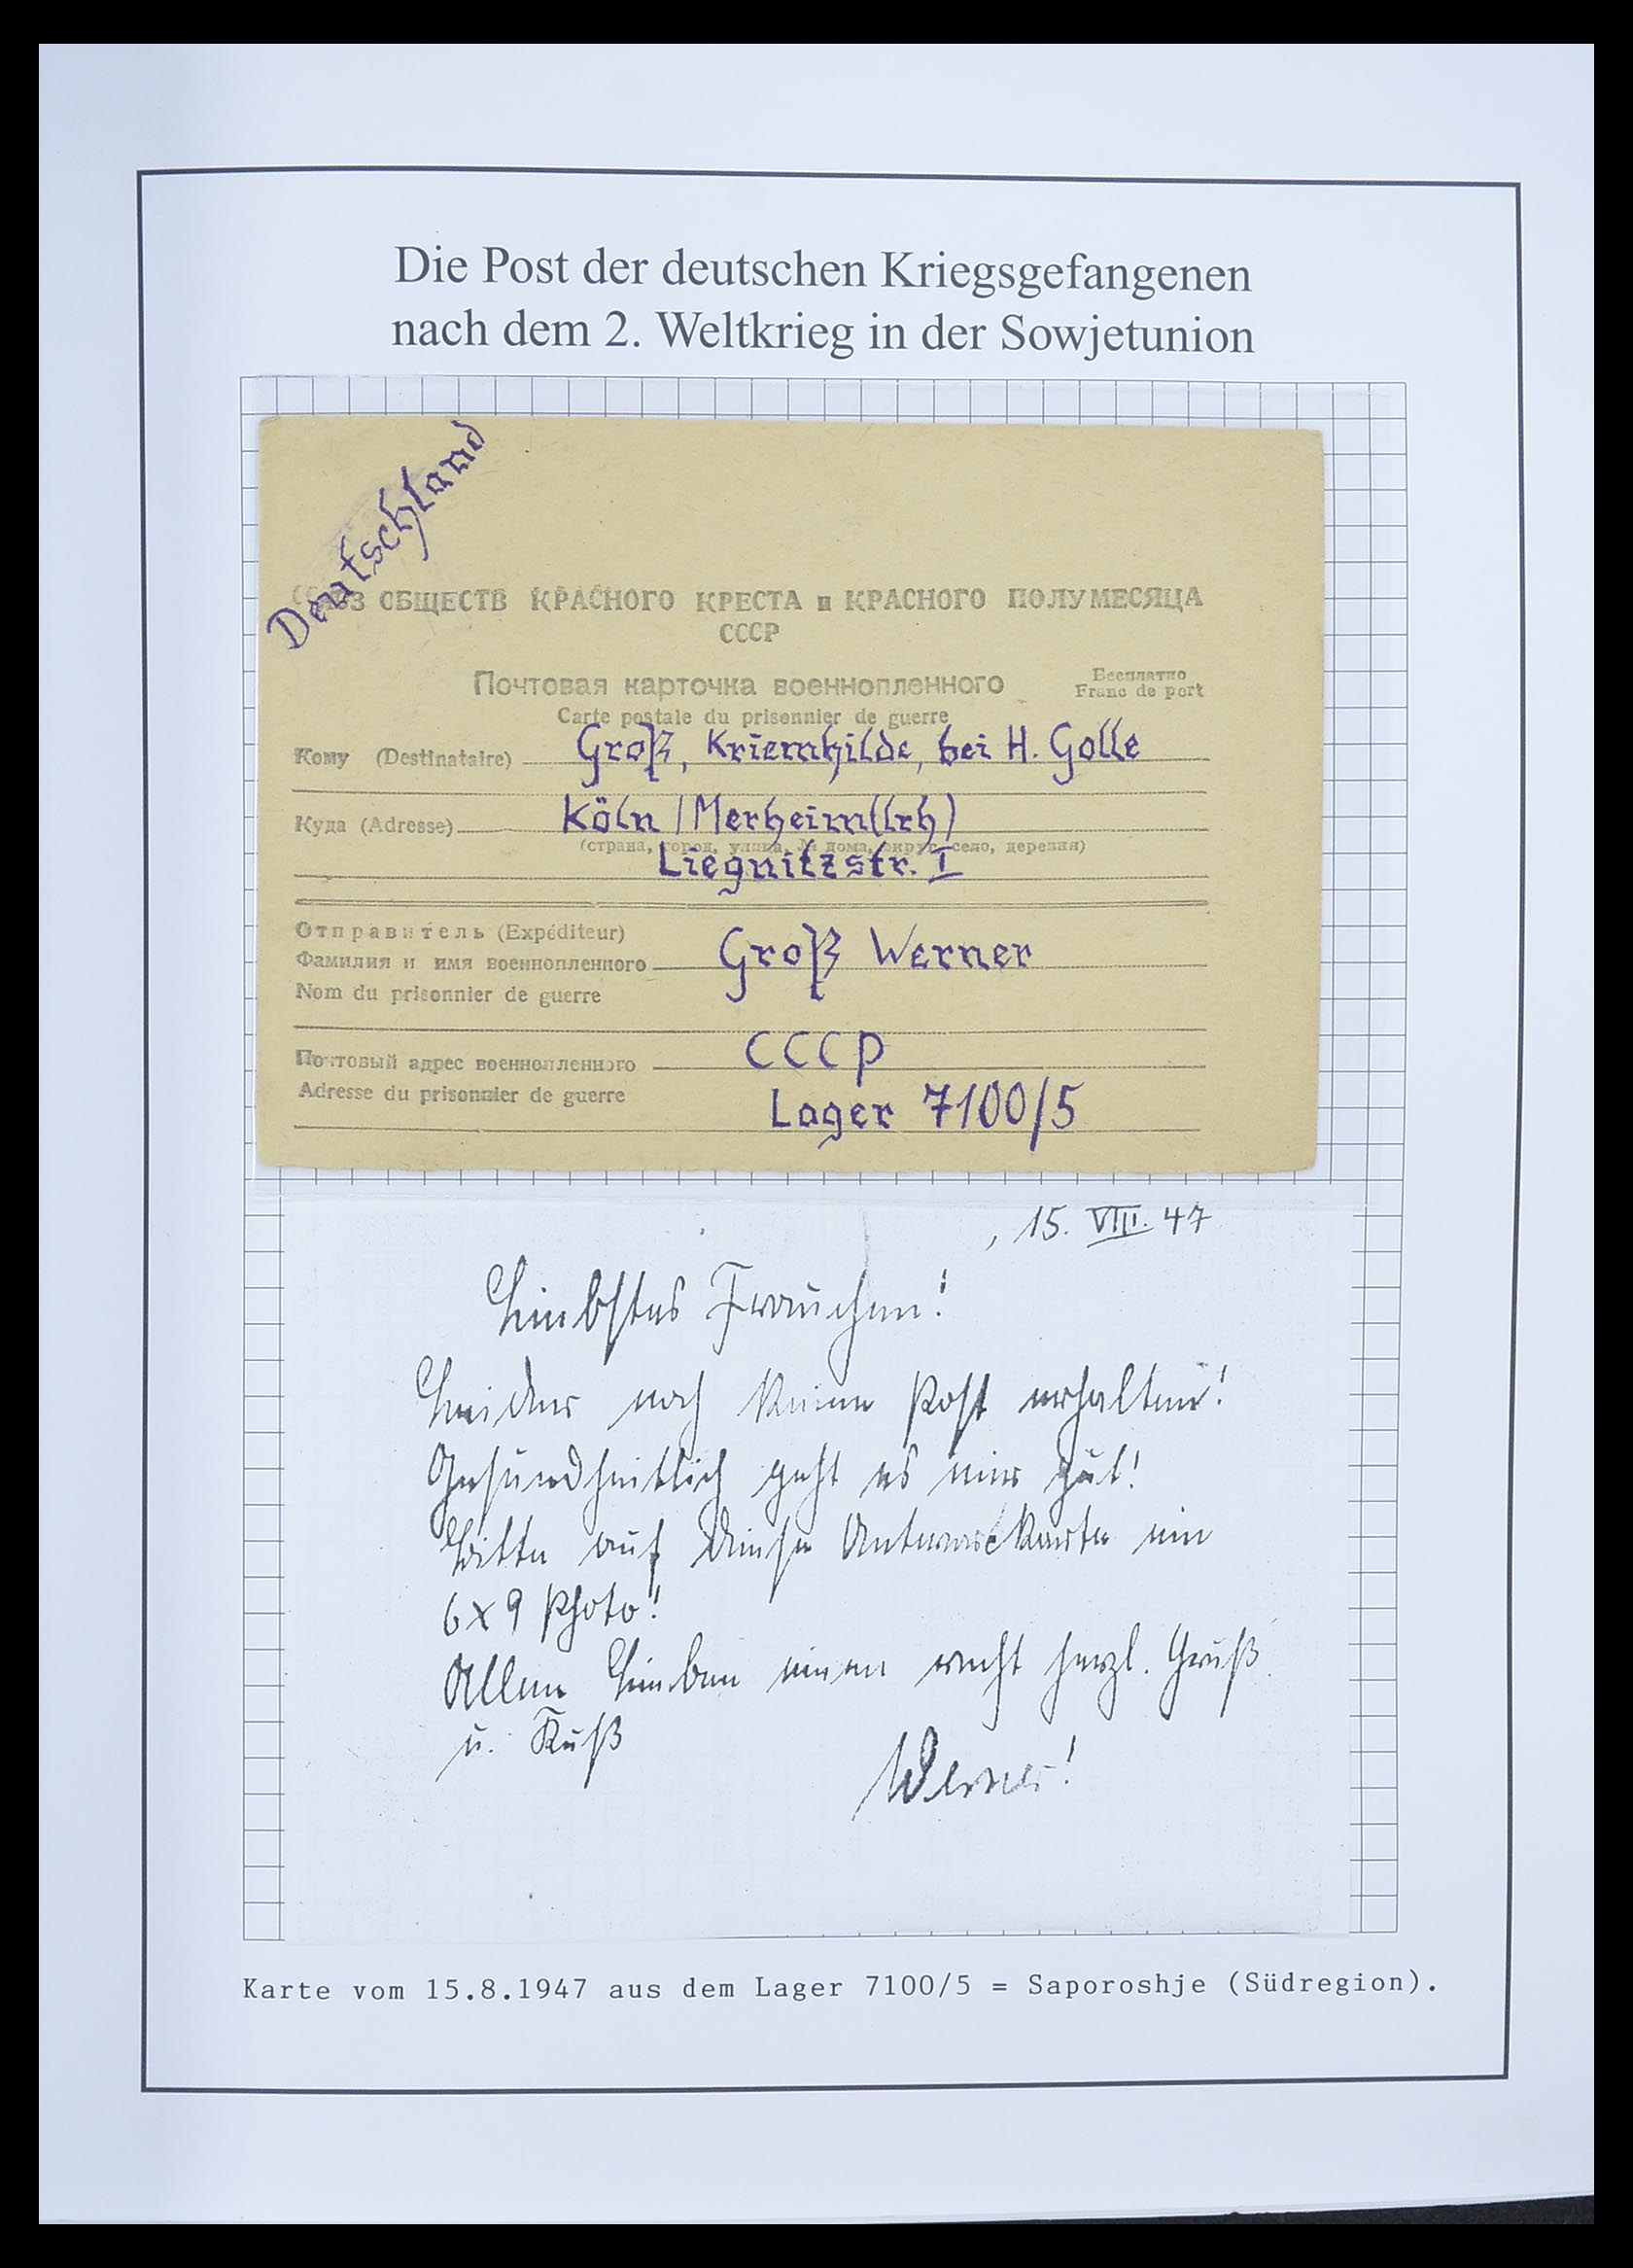 Die Post der deutschen Kriegsgefangenen
nach dem 2. Weltkrieg in der Sowjetunion
Deutschland
СОЮЗ ОБЩЕСТВ КРАСНОГО КРЕСТА и КРАСНОГО ПОЛУМЕСЯЦА
СССР
Почтовая карточка военнопленного
Бесплатно
Franc de port
Carte postale du prisonnier de guerre
Кому (Destinataire) Groß, Kriemhilde, bei H. Golle
Куда (Adresse) Köln / Merheim (lrh)
(страна, город, улица, № дома, округ, село, деревня)
Liegnitzstr. I
Отправитель (Expéditeur)
Фамилия и имя военнопленного Groß Werner
Nom du prisonnier de guerre
Почтовый адрес военнопленного CCCP
Adresse du prisonnier de guerre
Lager 7100/5
, 15. VIII. 47
Liebstes Frauchen!
Leider noch keine Post erhalten!
Gesundheitlich geht es mir gut!
Bitte auf diese Antwortkarte ein
6x9 Photo!
Allen Lieben einen recht herzl. Gruß
u. Kuß
Werner!
Karte vom 15.8.1947 aus dem Lager 7100/5 = Saporoshje (Südregion).